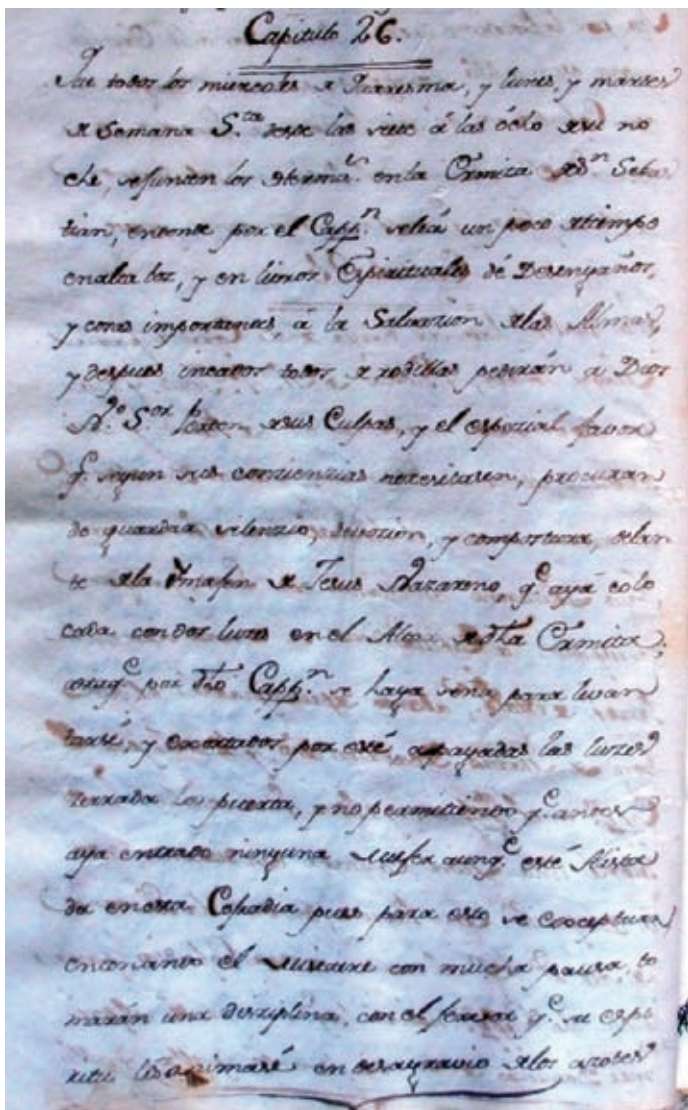 Capitulo 26.
Que todos los miercoles de Quaresma, y lunes, y martes
de Semana S.ta desde las siete á las ócho de su no
che, se junten los Herman.s en la Ermita de S.n Sebas
tian, en donde por el Capp.n se leá un poco de tiempo
en alta boz, y en libros Espirituales de Desengaños,
y cosas importantes, á la Salvazion de las Almas,
y despues incados todos de rodillas pedirán á Dios
N.ro S.or Perdon de sus Culpas, y el espezial favor
q.e segun sus conziencias nezesitasen, procuran
do guardar silenzio, devozion, y compostura, delan
te de la Ymajen de Jesus Nazareno, q.e ayá colo
cada con dos luzes en el Altar de d.ha Ermita,
asta q.e por d.ho Capp.n se haga seña para levan
tarsé, y exortados por esté apagadas las luzes
zerrada la puerta, y no permitiendo q.e antes
aya entrado ninguna Mujer aunq.e esté Alista
da en esta Cofradia pues para esto se exceptuan
entonando el Miserere con mucha pausa, to
marán una disziplina, con el fervor q.e su espi
ritu los animasé en desagravio de los azotes